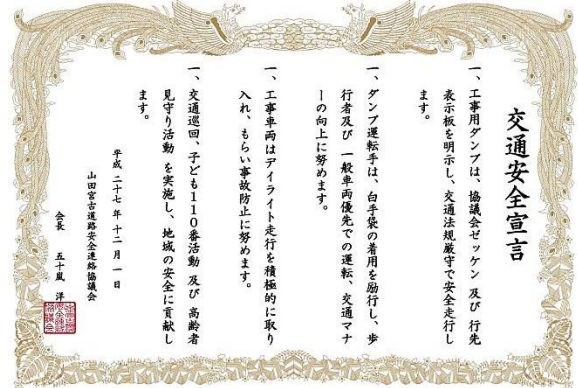 交通安全宣言
一、工事用ダンプは、協議会ゼッケン 及び 行先
表示板を明示し、交通法規厳守で安全走行し
ます。
一、ダンプ運転手は、白手袋の着用を励行し、歩
行者及び 一般車両優先での運転、交通マナ
ーの向上に努めます。
一、工事車両はデイライト走行を積極的に取り
入れ、もらい事故防止に努めます。
一、交通巡回、子ども110番活動 及び 高齢者
見守り活動 を実施し、地域の安全に貢献し
ます。
平成 二十七 年 十二 月 一 日
山田宮古道路安全連絡協議会
会長 五十嵐 洋